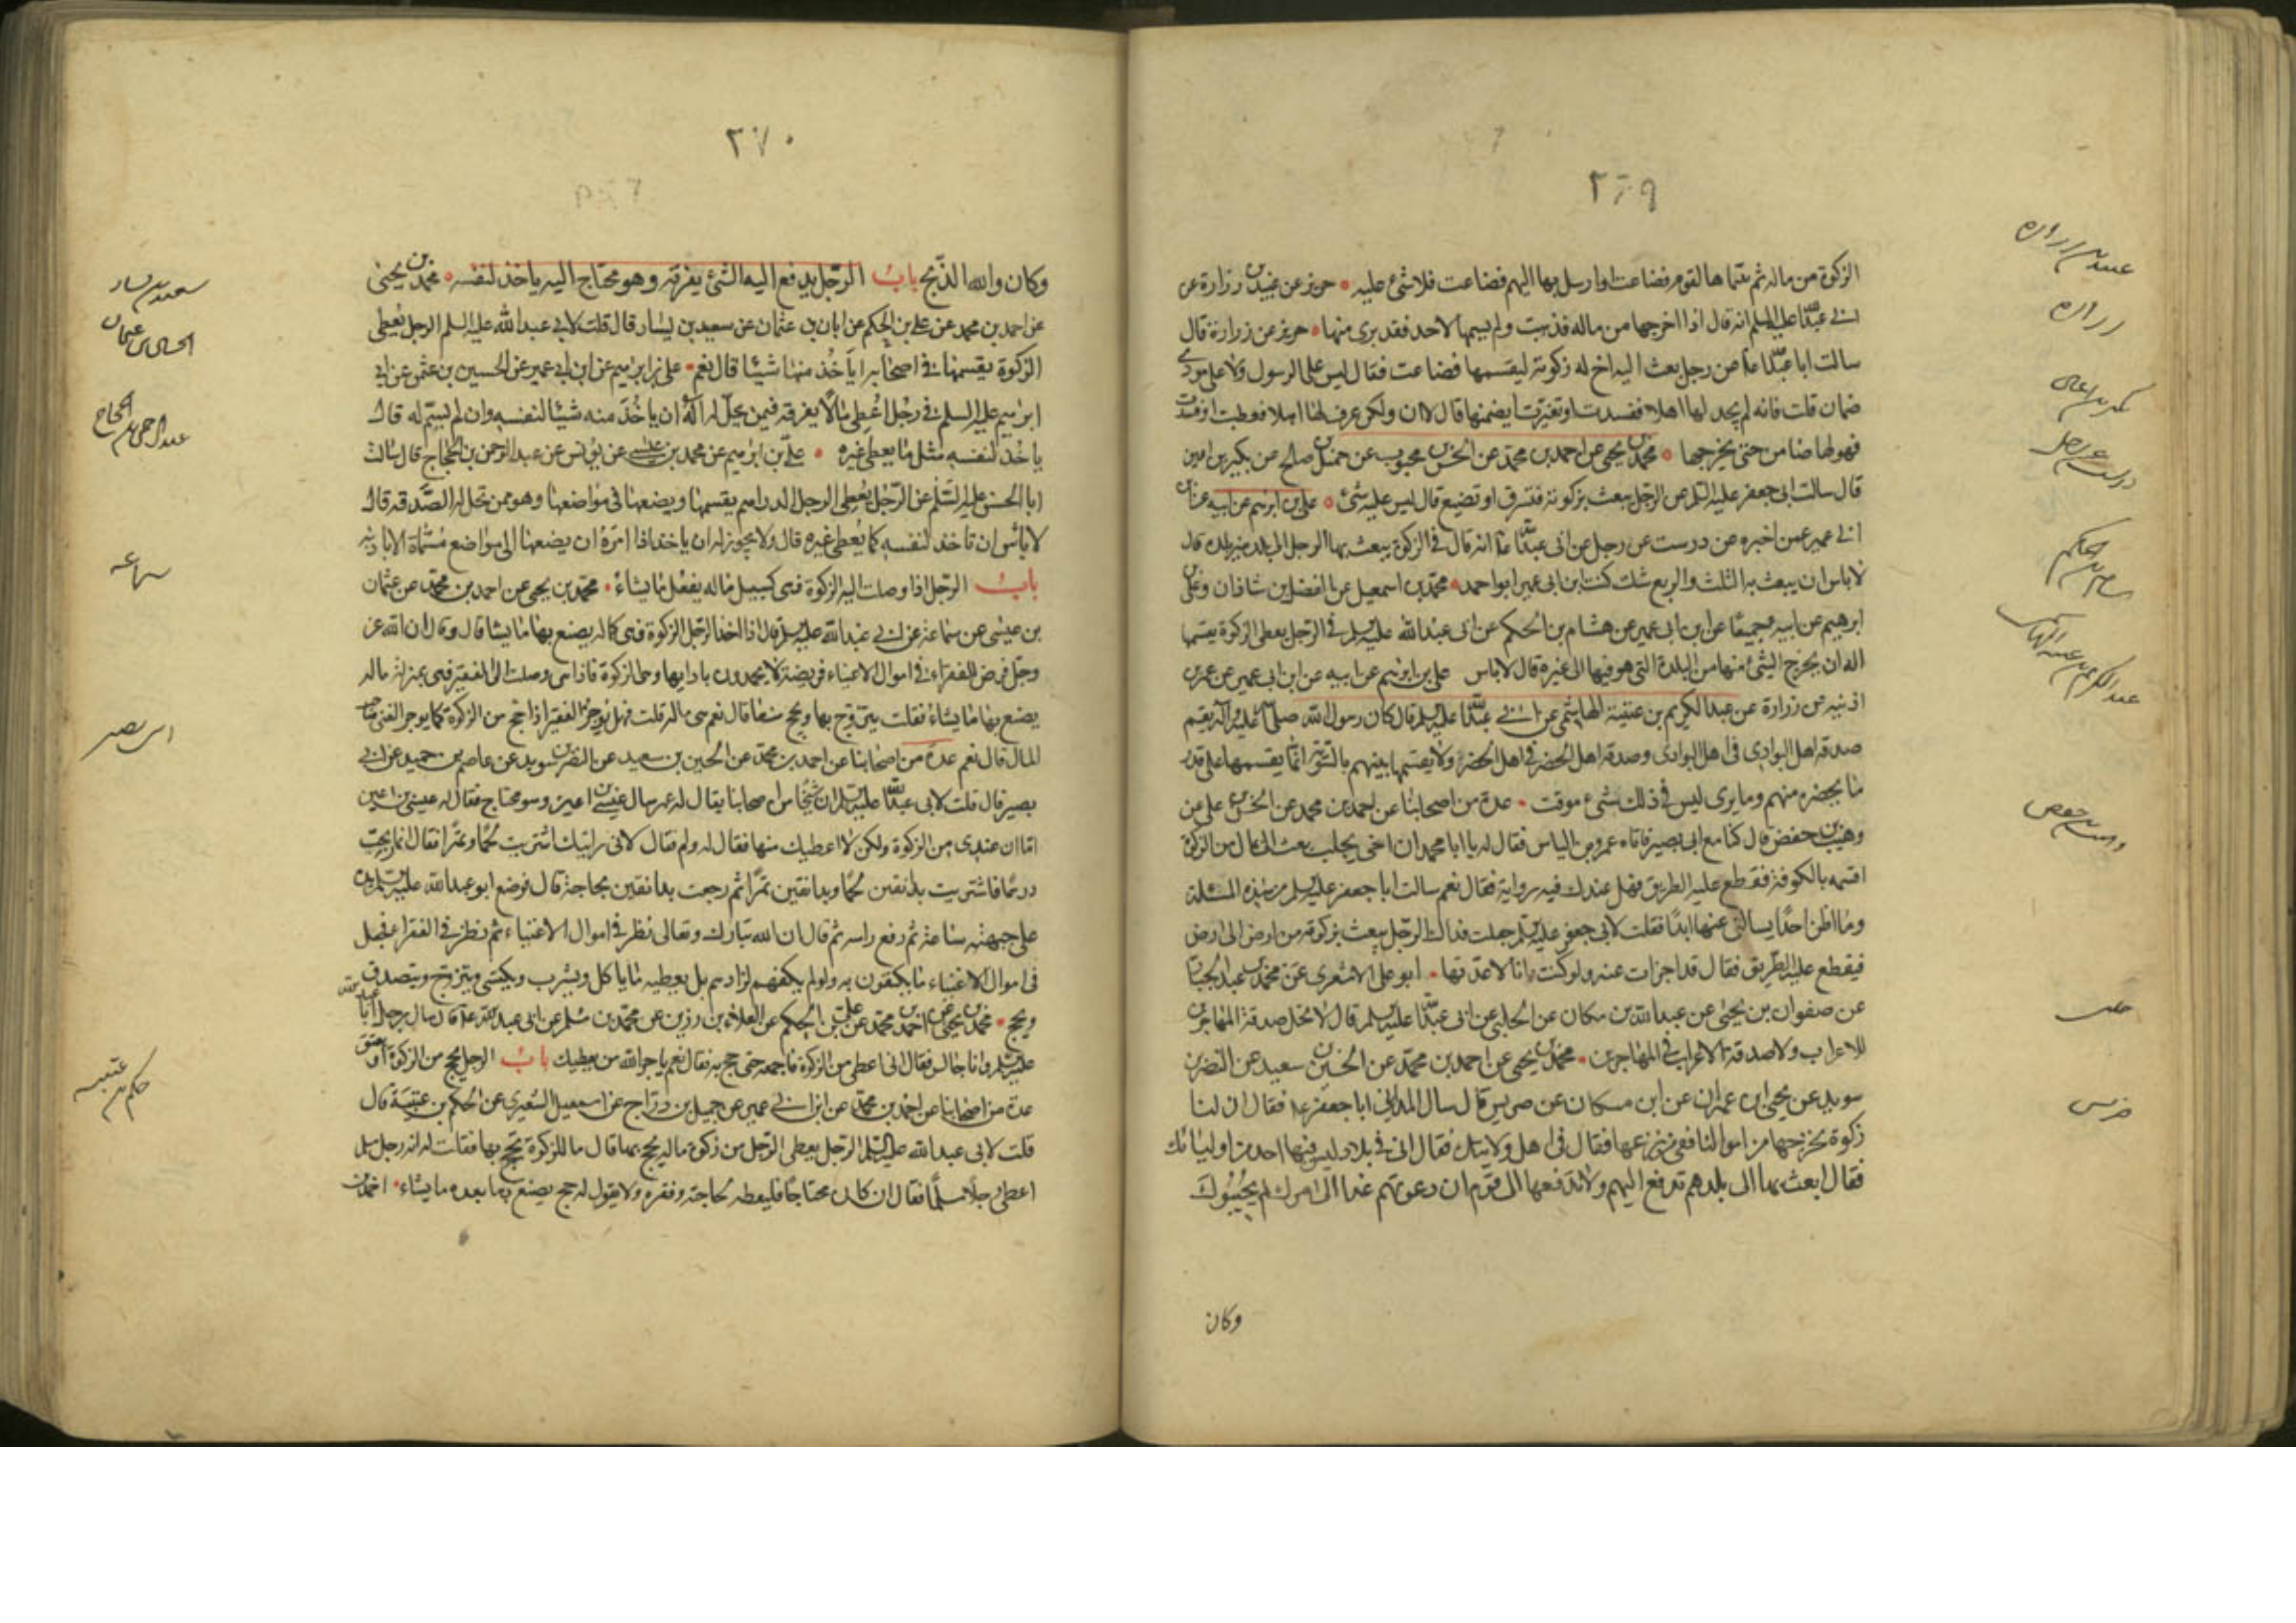 ٢٦٩
الزكوة من ماله ثم سماها لقوم فضاعت او ارسل بها اليهم فضاعت فلا شئ عليه حريز عن عبيد بن زرارة عن
ابي عبدالله عليه السلم انه قال اذا اخرجها من ماله فذهبت ولم يسمها لاحد فقد برئ منها حريز عن زرارة قال
سالت ابا عبدالله ع عن رجل بعث اليه اخ له زكوته ليقسمها فضاعت فقال ليس على الرسول ولا على المودى
ضمان قلت فانه لم يجد لها اهلا ففسدت وتغيرت ايضمنها قال لا ان ولكن عرف لها اهلا فعطبت او فسدت
فهو لها ضامن حتى يخرجها محمد بن يحيى عن احمد بن محمد عن الحسن بن محبوب عن جميل بن صالح عن بكير بن اعين
قال سالت ابى جعفر عليه السلم عن الرجل يبعث بزكوته فتسرق او تضيع قال ليس عليه شئ علي بن ابرهيم عن ابيه عن ابن
ابي عمير عمن اخبره عن درست عن رجل عن ابى عبدالله ع انه قال فى الزكوة يبعث بها الرجل الى بلد غير بلده قال
لا باس ان يبعث به الثلث والربع شك كنت ابن ابى عمير ابو احمد محمد بن اسمعيل عن الفضل بن شاذان وعلى بن
ابرهيم عن ابيه جميعًا عن ابن ابى عمير عن هشام بن الحكم عن ابى عبدالله عليه السلم فى الرجل يعطى الزكوة يقسمها
اله ان يخرج الشئ منها من البلدة التى هو فيها الى غيره قال لا باس على بن ابرهيم عن ابيه عن ابن ابى عمير عن عمر بن
اذينه عن زرارة عن عبد الكريم بن عتبة الهاشمى عن ابي عبدالله عليه السلم قال كان رسول الله صلى الله عليه واله يقسم
صدقه اهل البوادى فى اهل البوادى وصدقه اهل الحضر فى اهل الحضر ولا يقسمها بينهم بالسوية انما يقسمها على قدر
ما يحضره منهم وما يرى ليس فى ذلك شئ موقت عدة من اصحابنا عن احمد بن محمد عن الحسن بن على عن
وهيب بن حفص قال كنا مع ابى بصير فاتاه عمرو بن الياس فقال له يا ابا محمد ان اخى بحلب بعث الى بمال من الزكوة
اقسمه بالكوفة فقطع عليه الطريق فهل عندك فيه رواية فقال نعم سالت ابا جعفر عليه السلم عن هذه المسئلة
وما اظن احدًا يسالنى عنها ابدًا فقلت لابى جعفر عليه السلم جعلت فداك الرجل يبعث بزكوته من ارض الى ارض
فيقطع عليه الطريق فقال قد اجزات عنه ولو كنت انا لاعدتها ابو على الاشعرى عن محمد بن عبد الجبار
عن صفوان بن يحيى عن عبدالله بن مسكان عن الحلبى عن ابى عبدالله عليه السلم قال لا تحل صدقة المهاجرين
للاعراب ولا صدقة الاعراب فى المهاجرين محمد بن يحيى عن احمد بن محمد عن الحسين بن سعيد عن النضر بن
سويد عن يحيى بن عمران عن ابن مسكان عن ضريس قال سال المداينى ابا جعفر ع فقال ان لنا
زكوة نخرجها من اموالنا ففى من نضعها فقال فى اهل ولايتك فقال انى فى بلاد ليس فيها احد من اوليائك
فقال ابعث بها الى بلدهم تدفع اليهم ولا تدفعها الى قوم ان دعوتهم غدا الى امرك لم يجيبوك
وكان
عبيد بن زراره
زراره
بكير بن اعين
عبد الكريم بن عتبه الهاشمى
وهيب بن حفص
حلبى
ضريس
٢٧٠
وكان والله الذبح باب الرجل يدفع اليه الشئ يفرقه وهو محتاج اليه ياخذ لنفسه محمد بن يحيى
عن احمد بن محمد عن على بن الحكم عن ابان بن عثمان عن سعيد بن يسار قال قلت لابى عبدالله عليه السلم الرجل يعطى
الزكوة يقسمها فى اصحابه اياخذ منها شيئا قال نعم على بن ابرهيم عن ابن ابى عمير عن الحسين بن عثمن عن ابى
ابرهيم عليه السلم فى رجل اعطى مالا يفرقه فيمن يحل له اله ان ياخذ منه شيئا لنفسه وان لم يسم له قال
ياخذ لنفسه مثل ما يعطى غيره على بن ابرهيم عن محمد بن عيسى عن يونس عن عبد الرحمن بن الحجاج قال سالت
ابا الحسن عليه السلم عن الرجل يعطى الرجل الدراهم يقسمها ويضعها فى مواضعها وهو ممن تحل له الصدقه قال
لا باس ان ياخذ لنفسه كما يعطى غيره قال ولا يجوز له ان ياخذ اذا امره ان يضعها الى مواضع مسماة الا باذنه
باب الرجل اذا وصلت اليه الزكوة فهى كسبيل ماله يفعل ما يشاء محمد بن يحيى عن احمد بن محمد عن عثمان
بن عيسى عن سماعة عن ابي عبدالله عليه السلم قال اذا اخذ الرجل الزكوة فهى كماله يصنع بها ما يشا قال وقال ان الله عز
وجل فرض للفقراء فى اموال الاغنياء فريضة لا يحمدون بادايها وهى الزكوة فاذا هى وصلت الى الفقير فهى بمنزلة ماله
يصنع بها ما يشاء فقلت يتزوج بها ويحج منها قال نعم هى ماله قلت فهل يوجر الفقير اذا حج من الزكوة كما يوجر الغنى صاحب
المال قال نعم عدة من اصحابنا عن احمد بن محمد عن الحسين بن سعيد عن النضر بن سويد عن عاصم بن حميد عن ابي
بصير قال قلت لابى عبدالله عليه السلم ان شيخا من اصحابنا يقال له عمر سال عيسى بن اعين وهو محتاج فقال له عيسى بن اعين
اما ان عندى من الزكوة ولكن لا اعطيك منها فقال له ولم فقال لانى رايتك اشتريت لحما وتمرا فقال انما ربحت
درهما فاشتريت بدانقين لحما وبدانقين تمرا ثم رجعت بدانقين بحاجة قال فوضع ابو عبدالله عليه السلم يده
على جبهته ساعة ثم رفع راسه ثم قال ان الله تبارك وتعالى نظر فى اموال الاغنياء ثم نظر فى الفقرا فجعل
فى اموال الاغنياء ما يكتفون به ولو لم يكفهم لزادهم بل يعطيه ما ياكل ويشرب ويكتسى ويتزوج ويتصدق
ويحج محمد بن يحيى عن احمد بن محمد عن على بن الحكم عن العلاء بن رزين عن محمد بن مسلم عن ابى عبدالله ع قال سال رجل ابا عبدالله
عليه السلم وانا جالس فقال انى اعطى من الزكوة فاجمعه حتى احج به فقال نعم ياجر الله من يعطيك باب الرجل يحج من الزكوة او يعتق
عدة من اصحابنا عن احمد بن محمد عن ابن ابي عمير عن جميل بن دراج عن اسمعيل الشعيرى عن الحكم بن عتيبة قال
قلت لابى عبدالله عليه السلم الرجل يعطى الرجل من زكوة ماله يحج بها قال مال الزكوة يحج بها فقلت له انه رجل مسلم
اعطى رجلا مسلما فقال ان كان محتاجا فليعطه لحاجته وفقره ولا يقول له حج يصنع بها بعده ما يشاء احمد بن
سعيد بن يسار
الحسين بن عثمان
عبد الرحمن بن الحجاج
سماعه
ابى بصير
حكم بن عتيبه